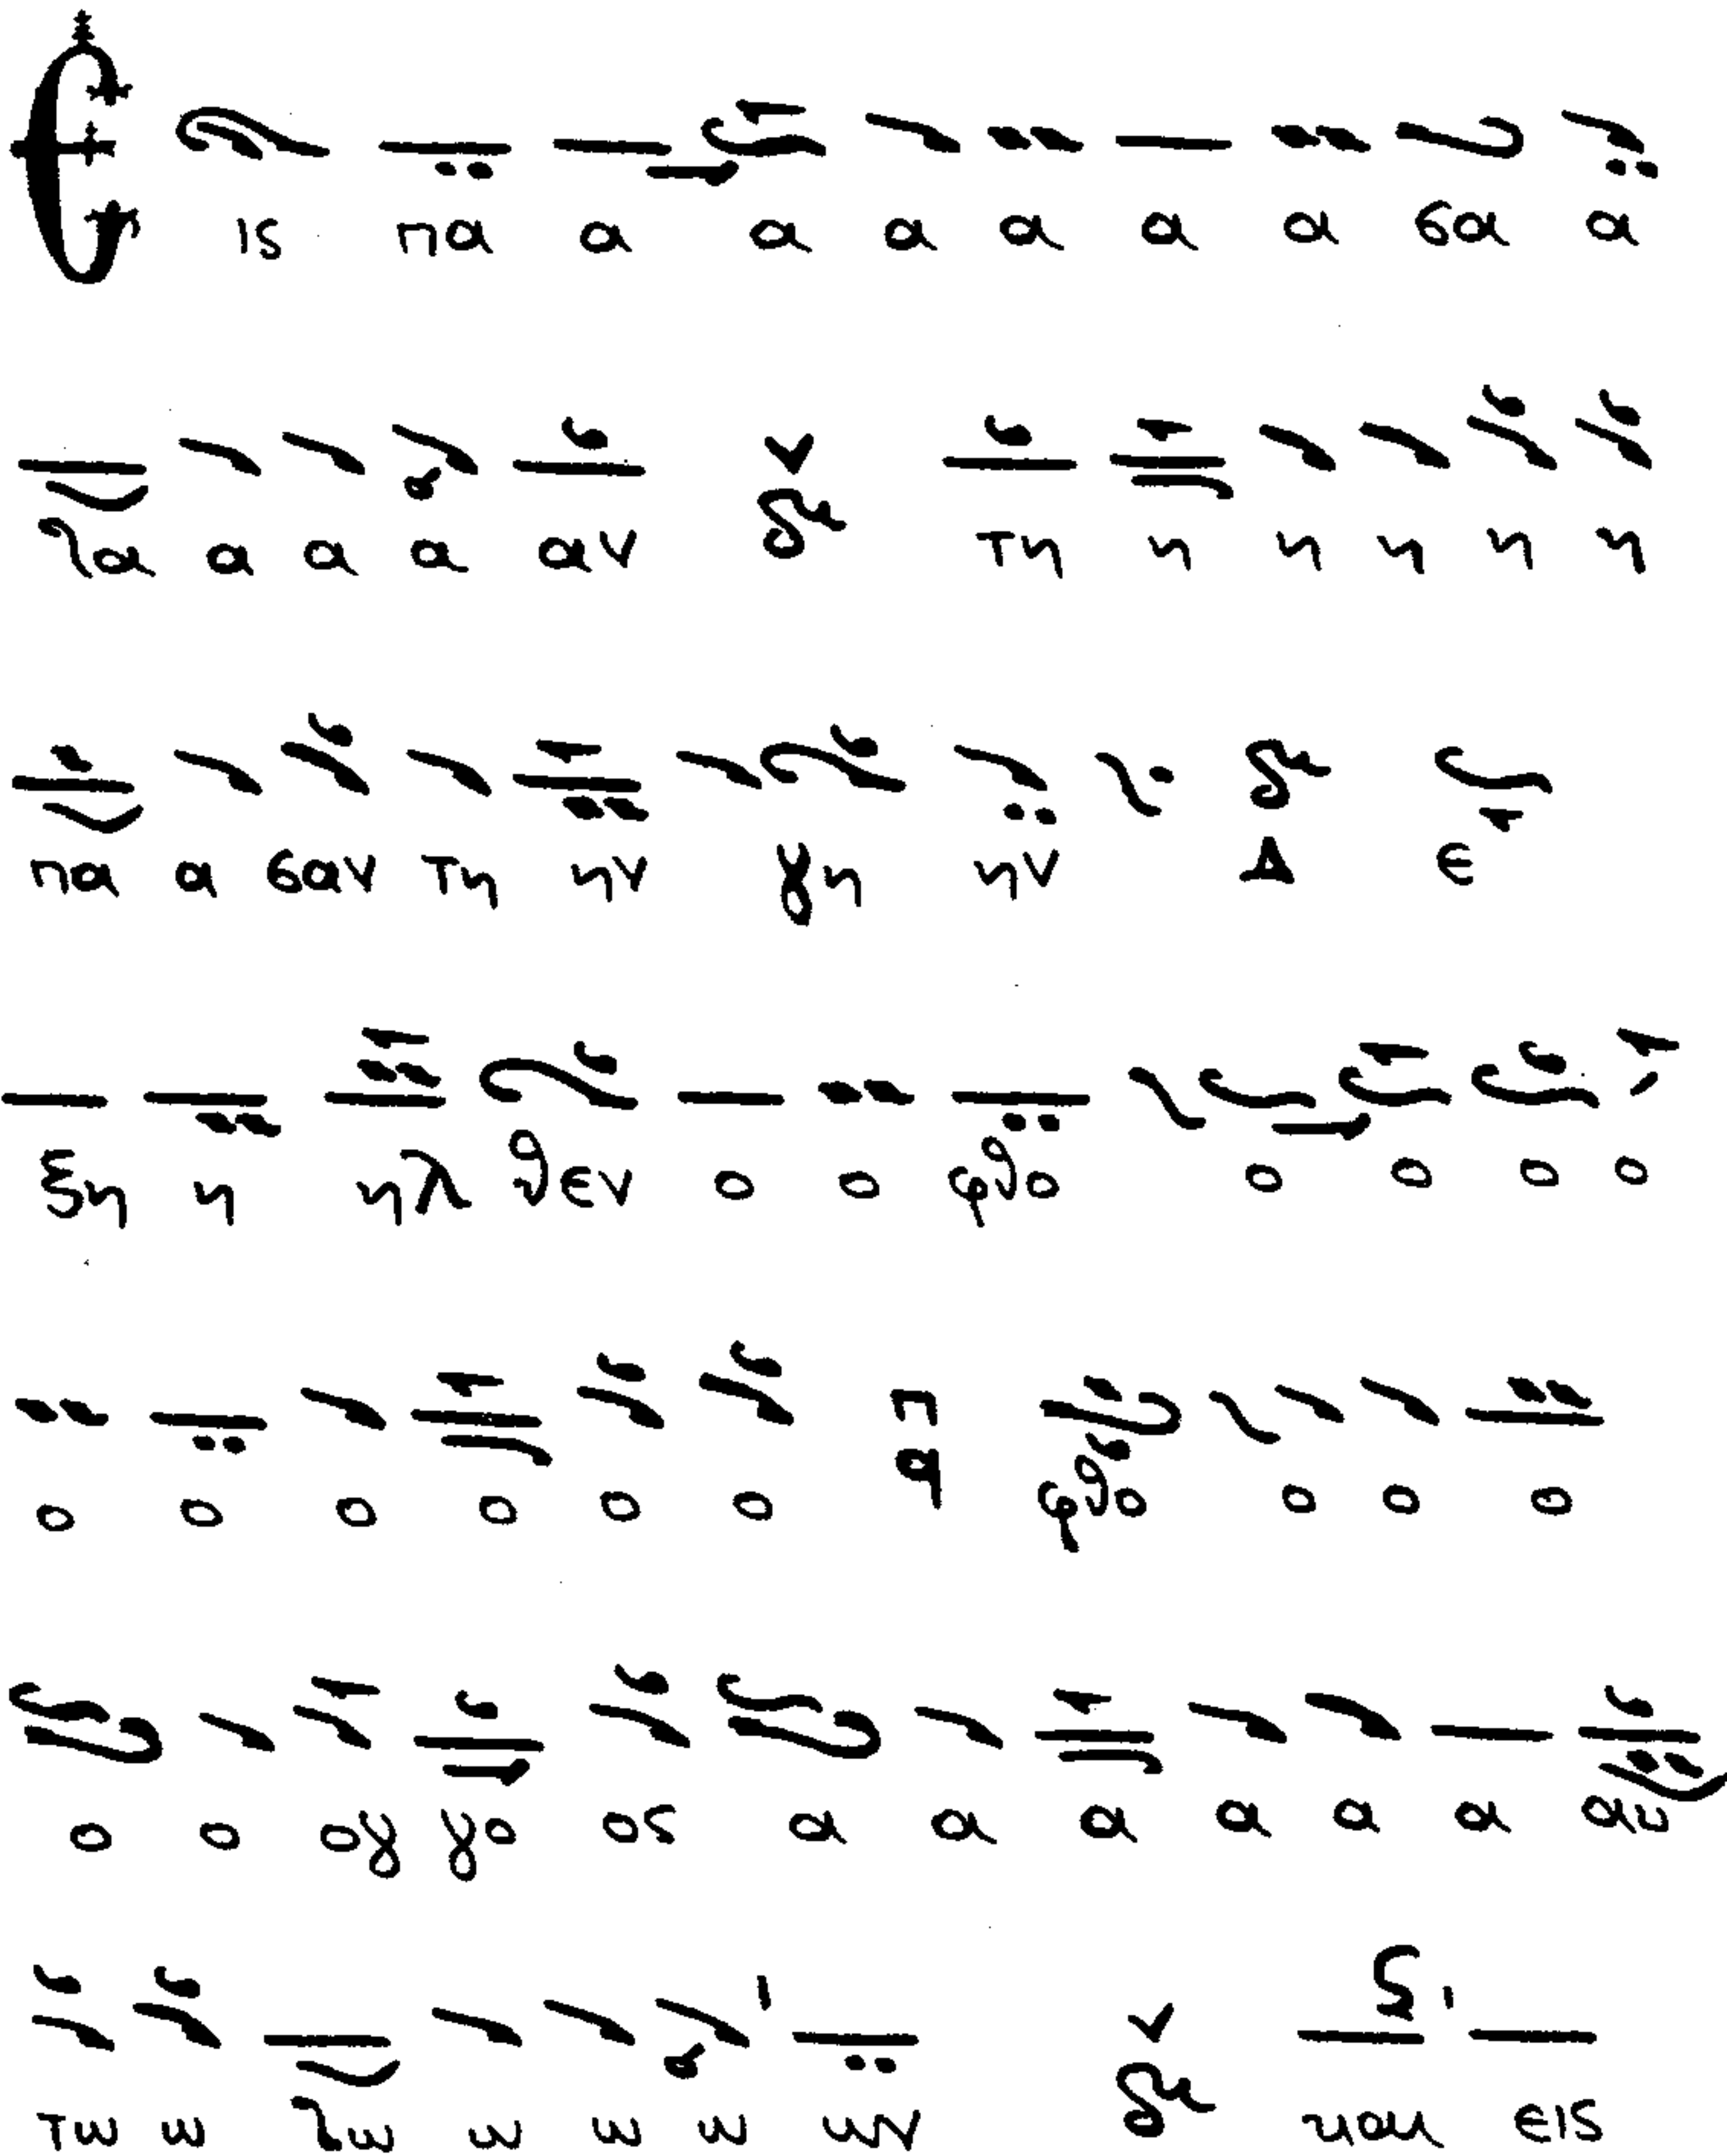 Εις πα α α α α α α σα α
α α α α αν τη η η η η η
πα α σαν τη ην γη ην Δ ε
ξη η ηλ θεν ο ο φθο ο ο ο ο
ο ο ο ο ο ο π q φθο ο ο ο
ο ο ογ γο ος α α α α α α αυ
τω ω ω ω ω ω ων και εις